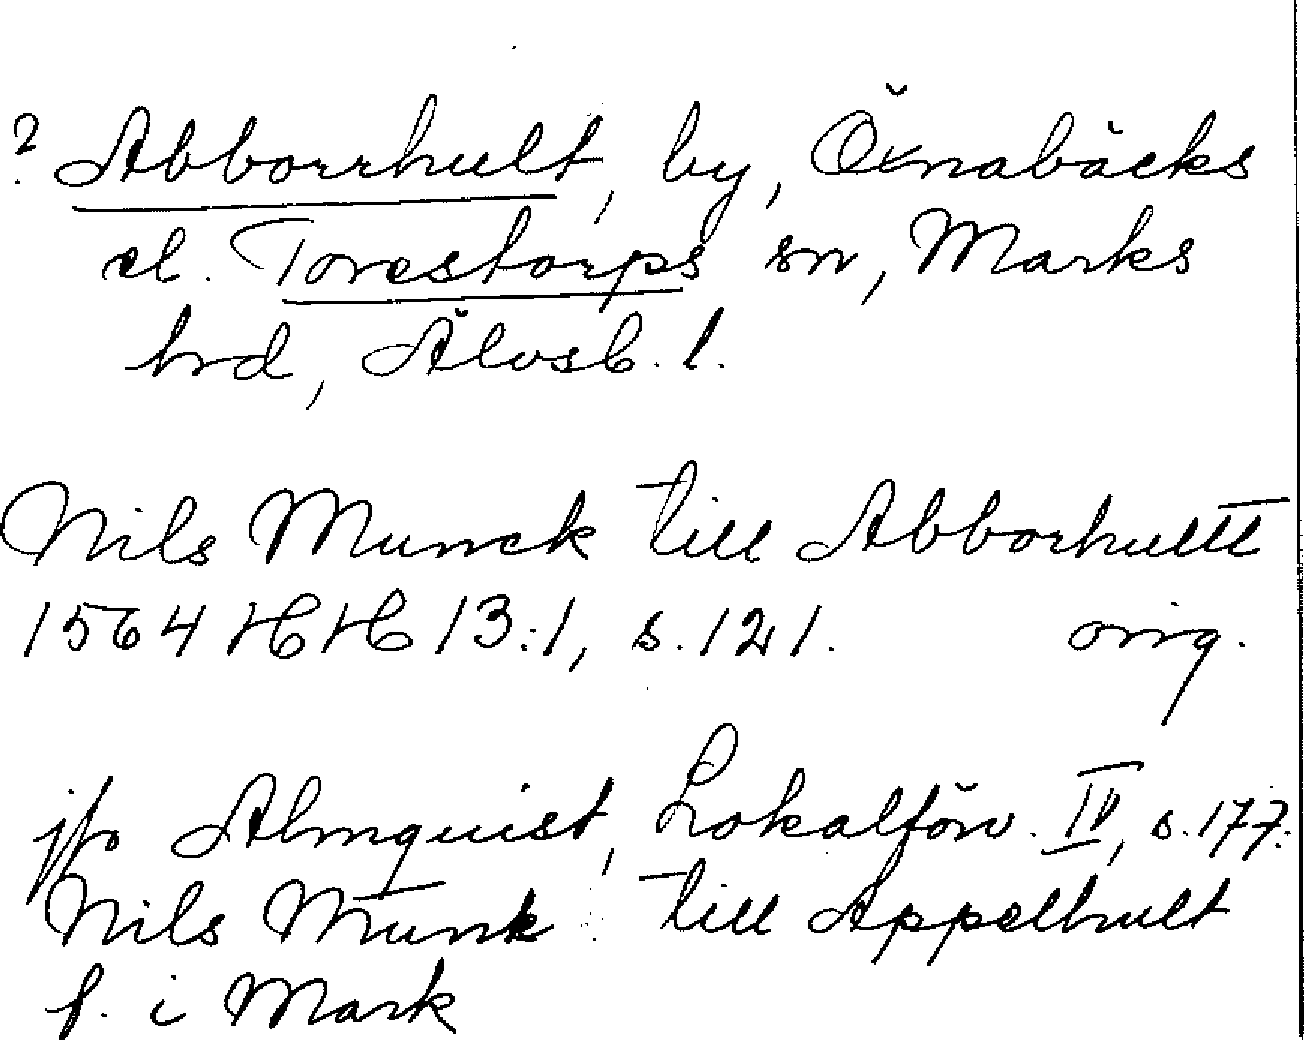 ? Abborrhult, by, Öxnabäcks
el. Torestorps sn, Marks
hrd, Älvsb. l.
Nils Munck till Abborhultt
1564 HH 13:1, s. 121. orig.
jfr Almquist, Lokalförv. IV, s. 177:
Nils Munk till Appelhult
f. i Mark